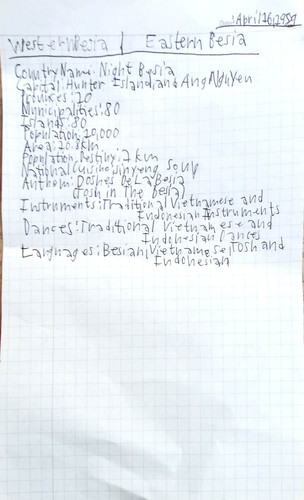 April 16, 1989
Western Besia | Eastern Besia
Country Name: Night Besia
Capital: Hunter Island, and Ang Nguyen
Provinces: 20
Municipalities: 80
Islands: 80
Population: 20,000
Area: 20.8km
Population Destiny: 2 km
National Cuisine: sinyeng soup
Anthom: Doshes De La Besia
(Tosh in The Besia)
Instruments: Traditional Vietnamese and
Indonesian Instruments
Dances: Traditional Vietnamese and
Indonesian Dances
Languages: Besian, Vietnamese, Tosh and
Indonesian